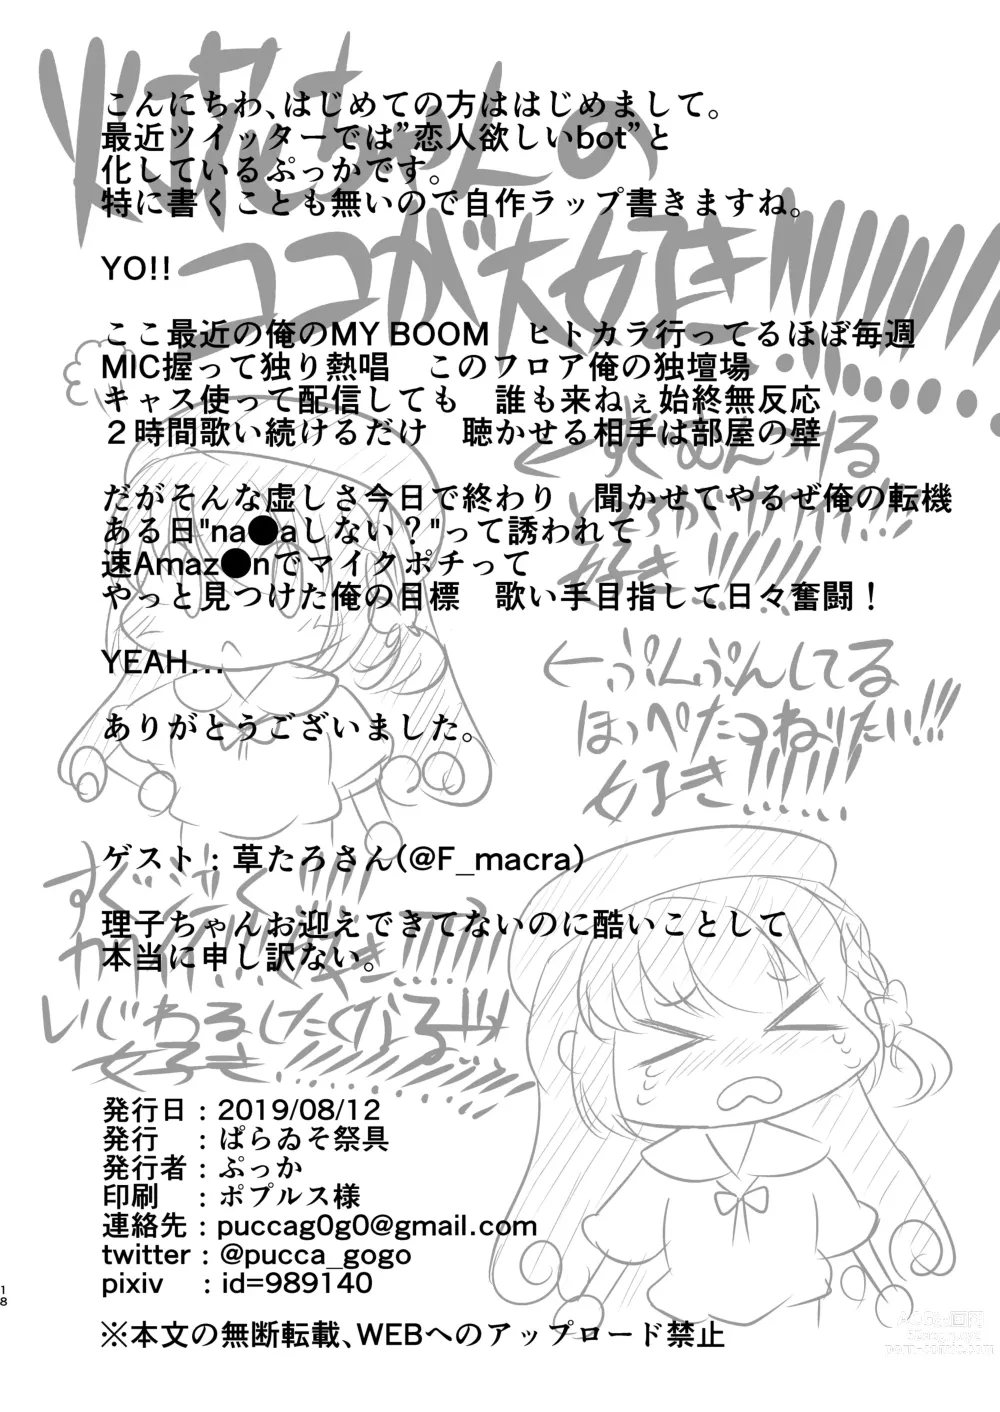 火花ちゃんの
ココが大好き!!!!!!!!!!
こんにちわ、はじめての方ははじめまして。
最近ツイッターでは”恋人欲しいbot”と
化しているぷっかです。
特に書くことも無いので自作ラップ書きますね。
YO!!
ここ最近の俺のMY BOOM　ヒトカラ行ってるほぼ毎週
MIC握って独り熱唱　このフロア俺の独壇場
キャス使って配信しても　誰も来ねぇ始終無反応
２時間歌い続けるだけ　聴かせる相手は部屋の壁
だがそんな虚しさ今日で終わり　聞かせてやるぜ俺の転機
ある日"na●aしない？"って誘われて
速Amaz●nでマイクポチって
やっと見つけた俺の目標　歌い手目指して日々奮闘！
YEAH…
ありがとうございました。
←すぐむくれる
ところがカワイイ!!!
好き!!!!!!
←ぷんぷんしてる
ほっぺたつねりたい!!!
好き!!!!!!
ゲスト：草たろさん(@F_macra)
理子ちゃんお迎えできてないのに酷いことして
本当に申し訳ない。
すぐ泣く!!!!→
いじわるしたくなるッッ
好き
発行日：2019/08/12
発行　：ぱらゐそ祭具
発行者：ぷっか
印刷　：ポプルス様
連絡先：puccag0g0@gmail.com
twitter：@pucca_gogo
pixiv　：id=989140
※本文の無断転載、WEBへのアップロード禁止
18